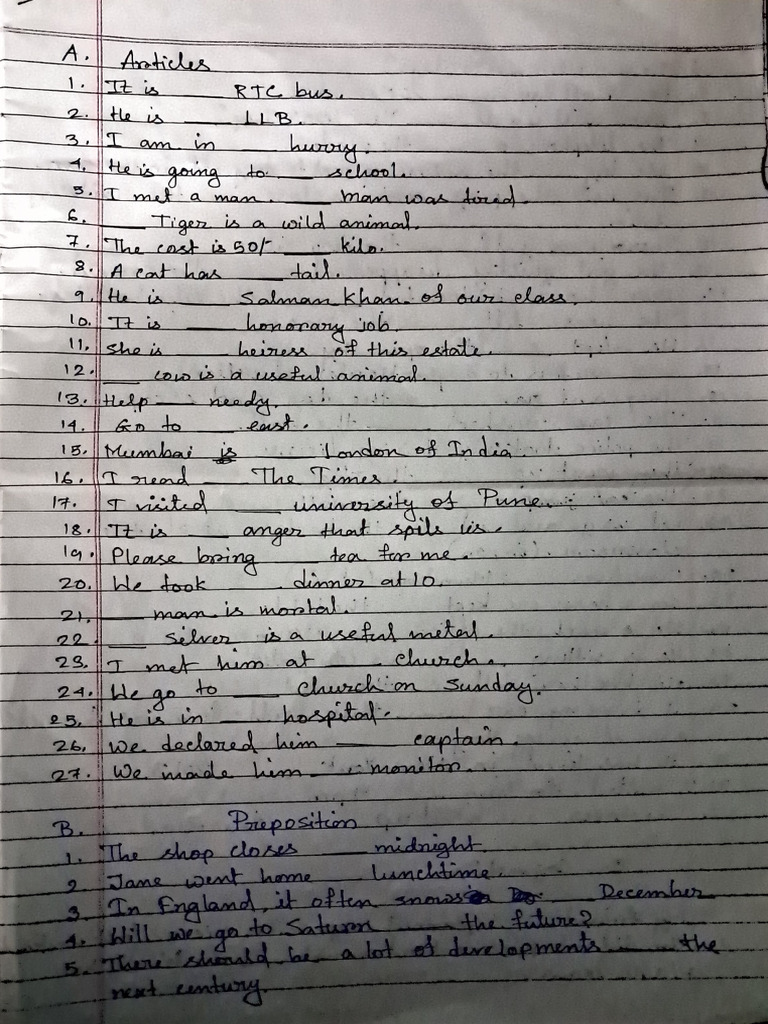 A. Articles
1. It is ___ RTC bus.
2. He is ___ LLB.
3. I am in ___ hurry.
4. He is going to ___ school.
5. I met a man. ___ man was tired.
6. ___ Tiger is a wild animal.
7. The cost is 50/- ___ kilo.
8. A cat has ___ tail.
9. He is ___ Salman Khan of our class.
10. It is ___ honorary job.
11. She is ___ heiress of this estate.
12. ___ cow is a useful animal.
13. Help ___ needy.
14. Go to ___ east.
15. Mumbai is ___ London of India
16. I read ___ The Times.
17. I visited ___ university of Pune.
18. It is ___ anger that spils us.
19. Please bring ___ tea for me.
20. We took ___ dinner at 10.
21. ___ man is mortal.
22 ___ Silver is a useful metal.
23. I met him at ___ church.
24. We go to ___ church on Sunday.
25. He is in ___ hospital.
26. We declared him ___ captain.
27. We made him ___ monitor.
B. Preposition
1. The shop closes ___ midnight.
2 Jane went home ___ lunchtime.
3 In England, it often snows ___ December
4. Will we go to Saturn ___ the future?
5. There should be a lot of developments ___ the
next century.